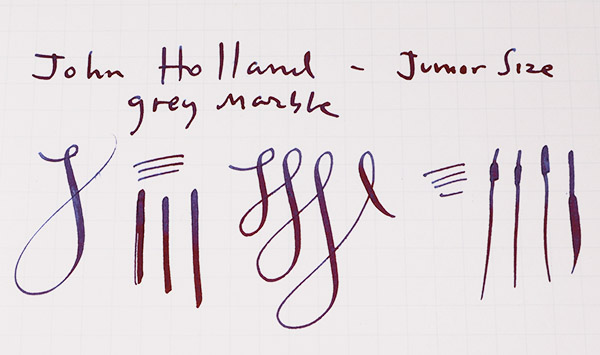 John Holland - Junior Size
grey Marble